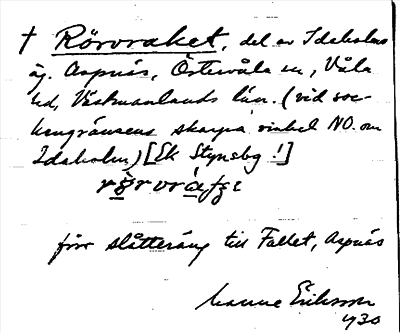 † Rörvraket, del av Idaholms
äg. Aspnäs, Östervåla sn, Våla
hd, Västmanlands län. (vid soc-
kengränsens skarpa vinkel NO. om
Idaholm) [Ek Stynsbg !]
förr slåtteräng till Fallet, Aspnäs
Manne Eriksson
1930